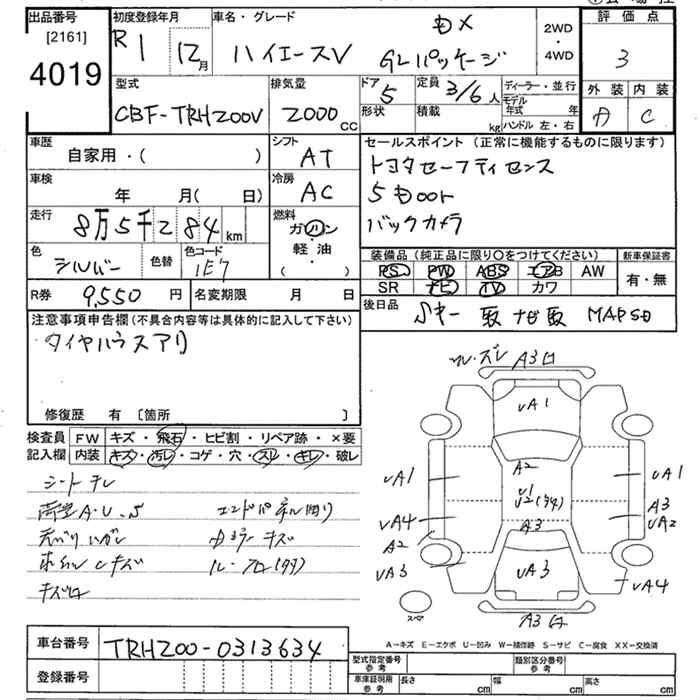 出品番号
[2161]
4019
初度登録年月
R1 12月
車名・グレード
DX
ハイエースV GLパッケージ
2WD
・
4WD
評価点
3
外装 内装
A C
型式
CBF-TRH200V
排気量
2000 CC
ドア
5
形状
定員
3/6人
積載 kg
ディーラー・並行
モデル年式 年
ハンドル 左・右
車歴
自家用・( )
シフト
AT
車検
年 月(日)
冷房
AC
走行
8万5千284km
燃料
ガソリン
・
軽油
( )
色
シルバー
色替
色コード
1E7
R券 9,550円
名変期限 月 日
セールスポイント(正常に機能するものに限ります)
トヨタセーフティセンス
5Door
バックカメラ
装備品(純正品に限り○をつけてください)
新車保証書
PS PW ABS エアB AW
SR ナビ TV カワ
有・無
後日品
Sキー 取 ナビ取 MAPSD
注意事項申告欄(不具合内容等は具体的に記入して下さい)
タイヤハウスアリ
修復歴 有 [箇所 ]
検査員記入欄
FW キズ・飛石・ヒビ割・リペア跡・×要
内装 キズ・汚レ・コゲ・穴・スレ・キレ・破レ
シートテレ
A・U・S エンドパネル
キズ
キズ ルーフ
キズ
ルーズレ
A3
UA1
A2
U1
A3
UA3
A3
UA1
UA4
A2
UA3
UA1
A3
UA2
UA4
スペア
A=キズ E=エクボ U=凹み W=補修跡 S=サビ C=腐食 XX=交換済
車台番号 TRH200-0313634
登録番号
型式指定番号 参考
類別区分番号 参考
車庫証明用 参考
長さ cm 幅 cm 高さ cm